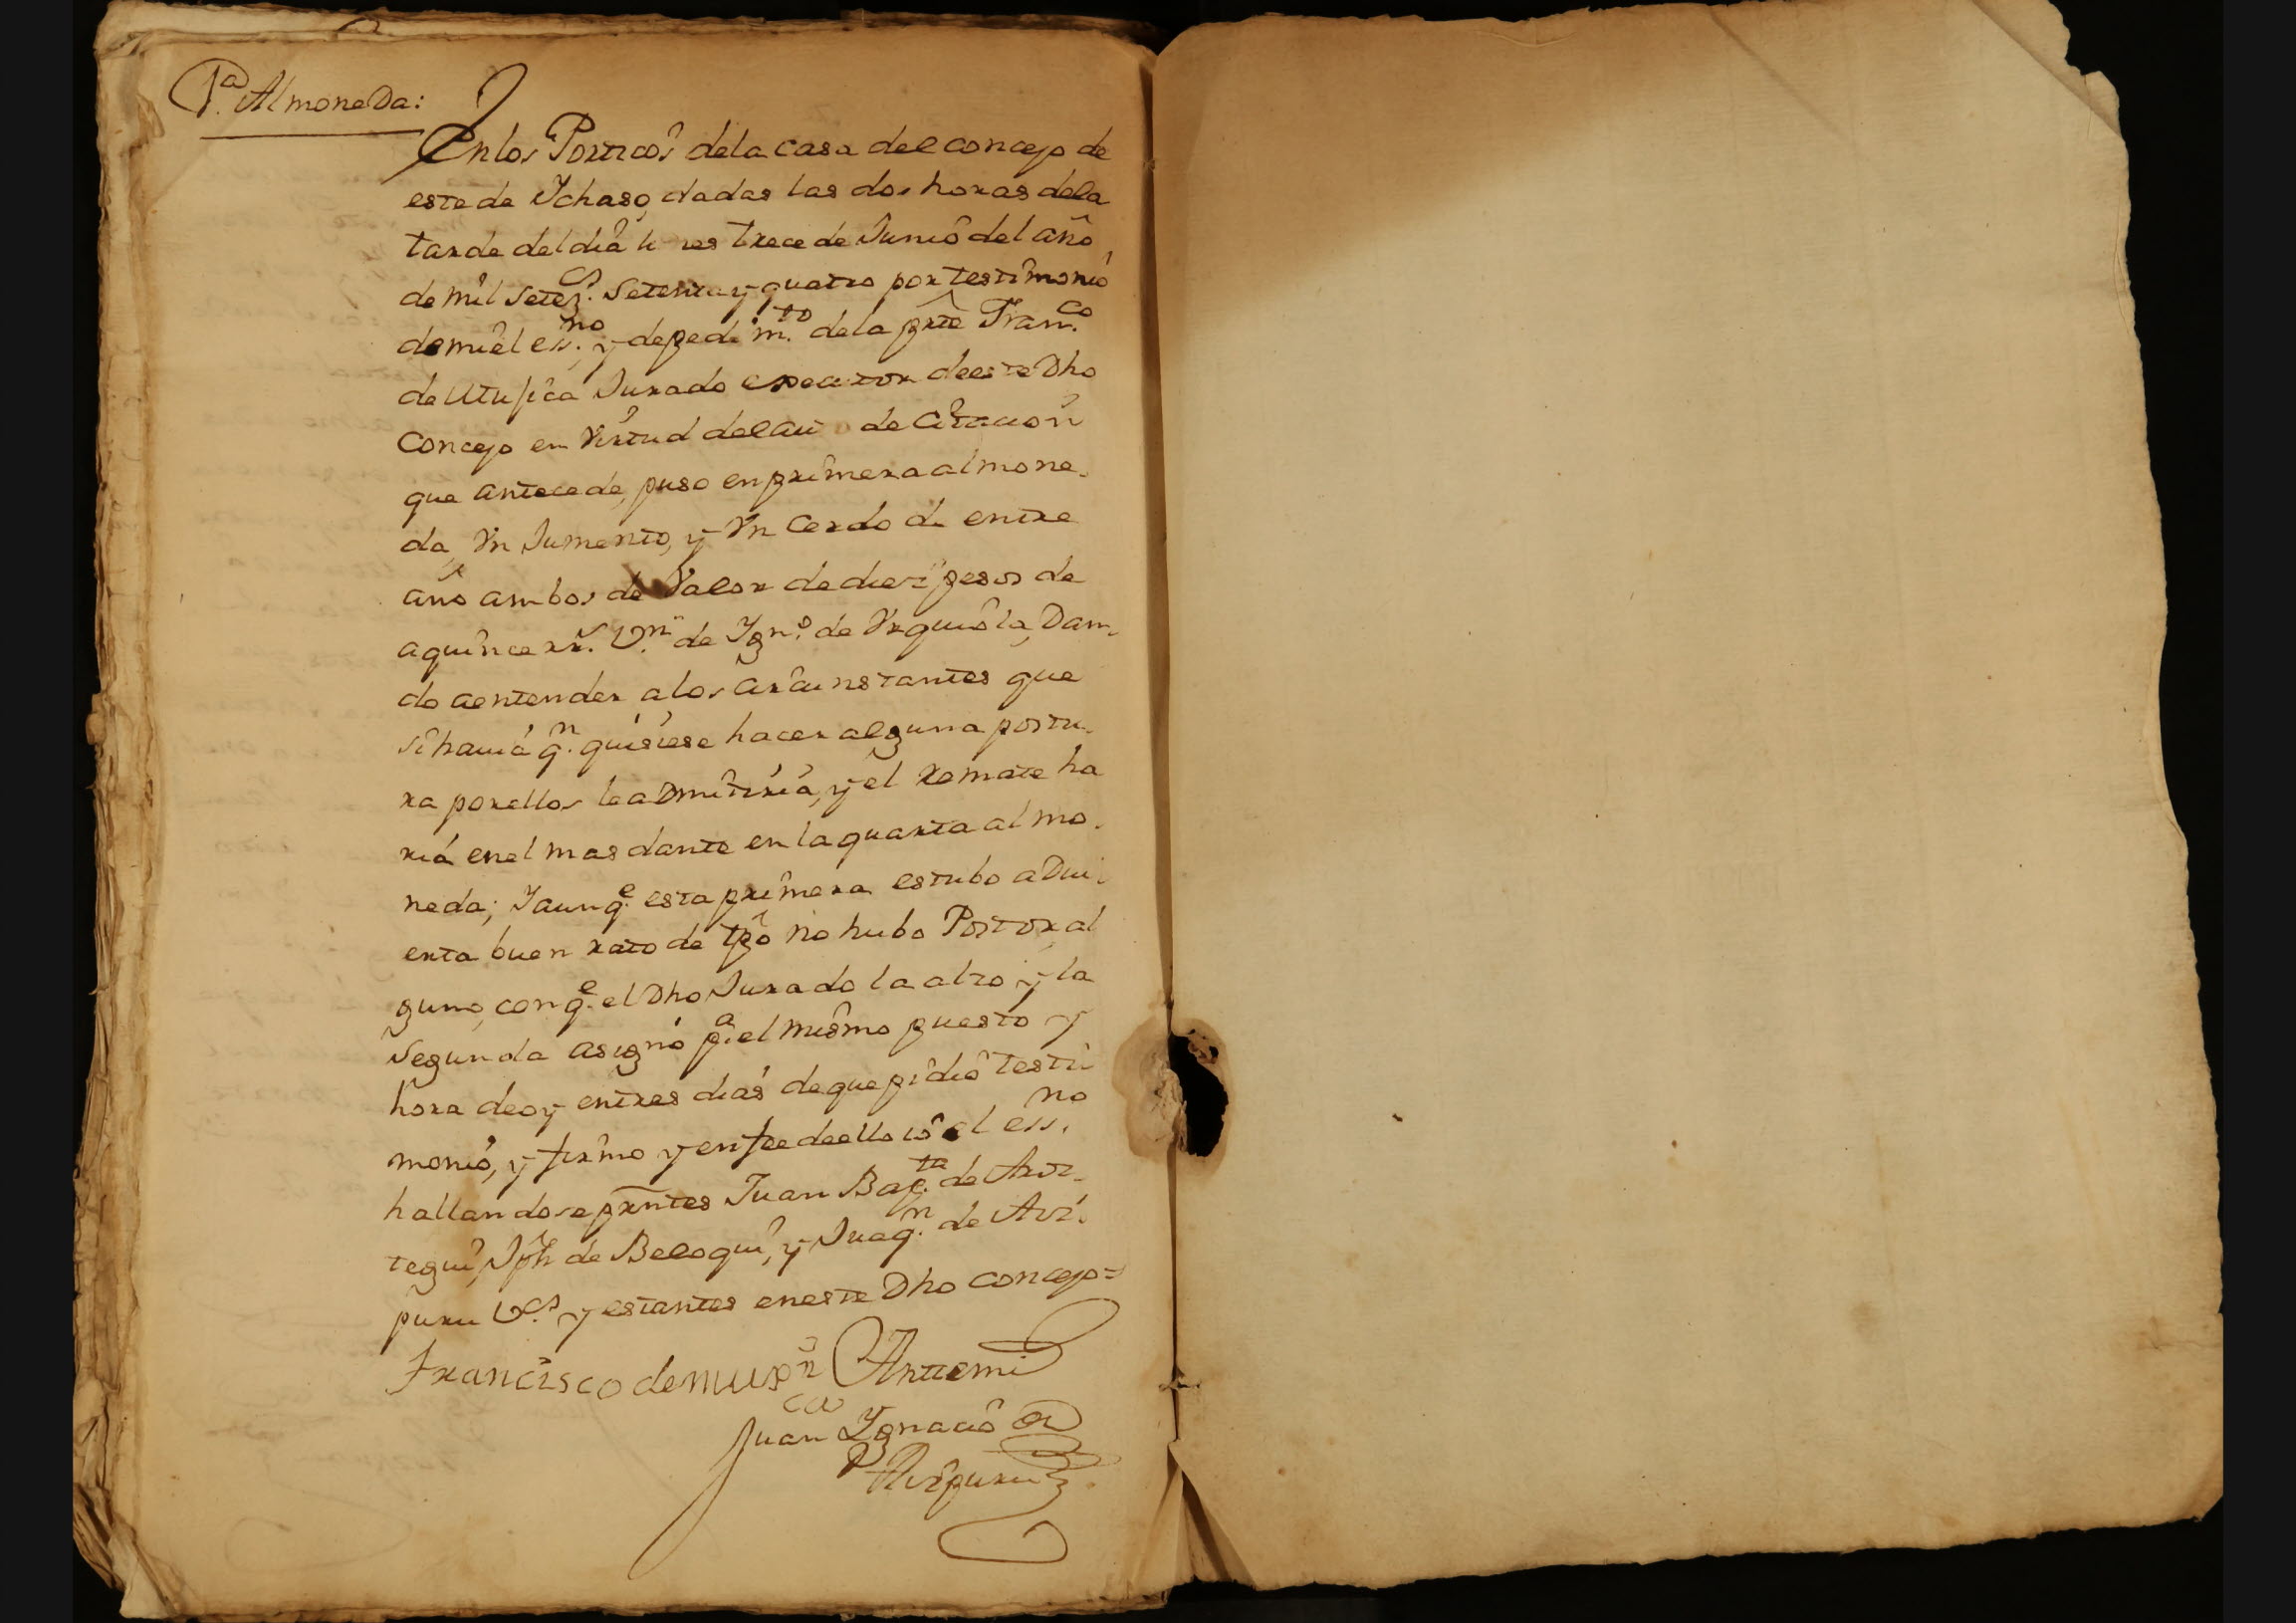 1.ª Almoneda:
En los Porticos dela casa del concejo de
este de Ychaso, dadas las dos horas dela
tarde del dia lunes trece de Junio del año
de mil setez.s setenta y quatro por testimonio
de mi el ess.no y de pedim.to dela prte Fran.co
de Jurado executor deeste Dho
Concejo en virtud del au de Citacion
que antecede, puso en primera almone-
da, Vn Jumento, y Vn Cerdo de entre
año ambos de Valor de diez pesos de
a quince rr.s V.n de Ygn.o de Vrquiola, Dan-
do aentender alos circunstantes que
si havia q.n quisiese hacer alguna postu-
ra porellos leadmitiria, y el remate ha
ria enel mas dante en la quarta almo-
neda; Yaunq.e esta primera estubo advi-
erta buen rato de tpo no hubo Postor al
guno, conq.e el Dho Jurado la alzo y la
segunda asigno p.a el mismo puesto y
hora deoy entres dias deque pidio testi
monio, y firmo y enfee deello io el ess.no
hallandose prntes Juan Bap.ta de Ariz-
tegui, Jph de Beloqui, y Juaq.n de Ariz-
puru V.os y estantes eneste Dho concejo=
Francisco de
Antemi
Juan Ygnacio de
Arizpuru